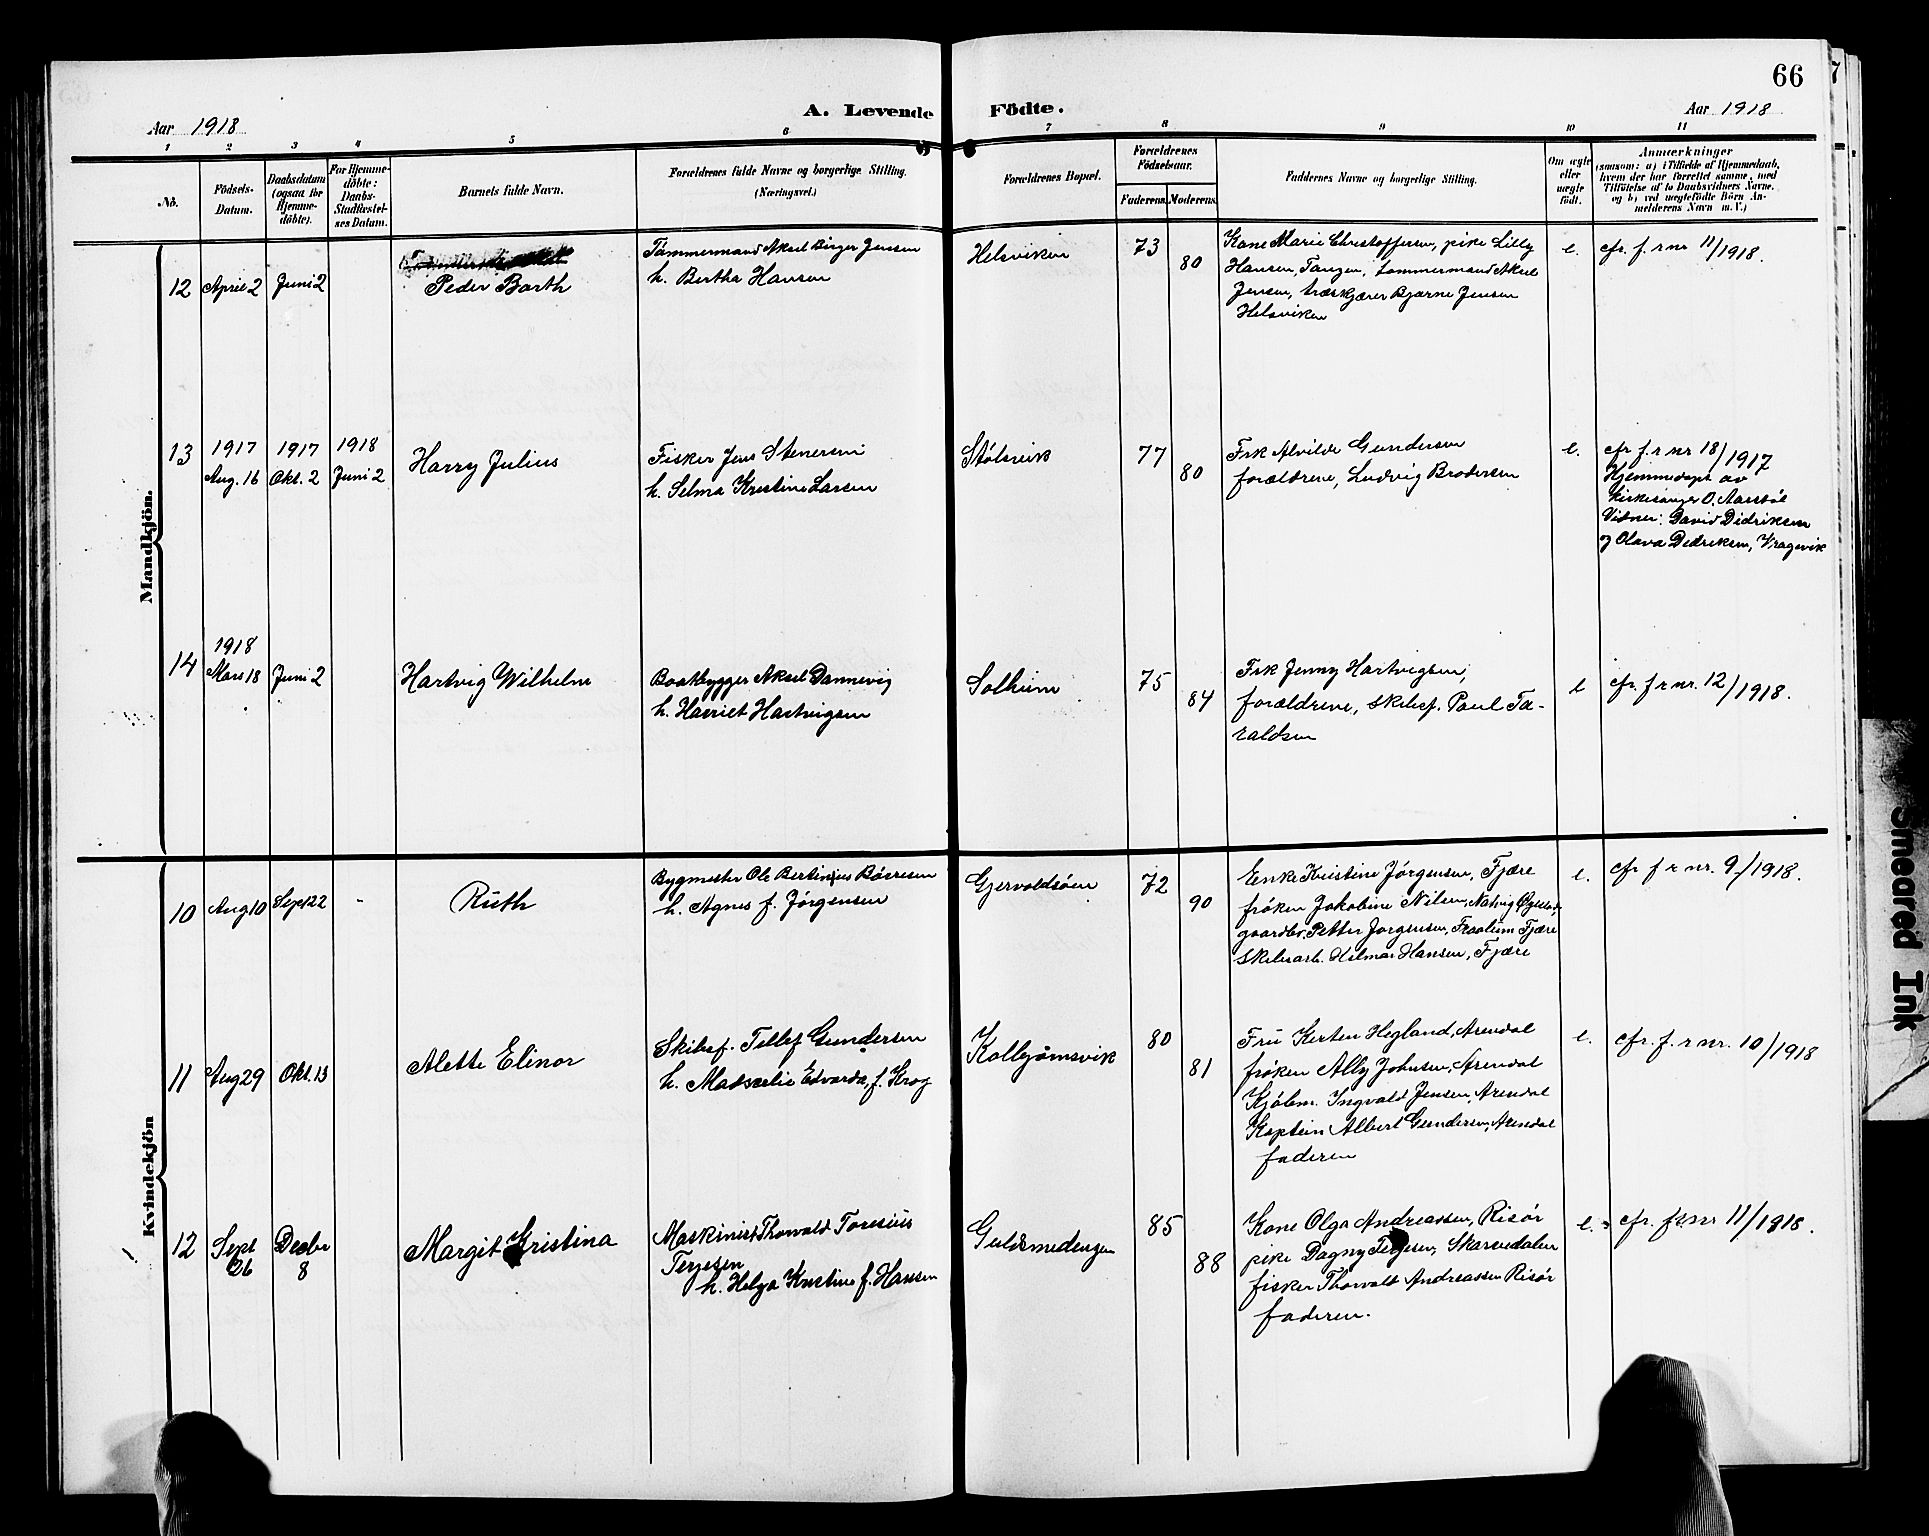 66
A. Levende Födte.
Aar 1918
Aar 1918
1 2 3 4 5 6 7 8 9 10 11
No.
Födsels-Datum.
Daabsdatum (ogsaa for Hjemme-döbte).
For Hjemme-döbte: Daabs-Stadfæstel-ses Datum.
Barnets fulde Navn.
Forældrenes fulde Navne og borgerlige Stilling. (Næringsvei.)
Forældrenes Bopæl.
Forældrenes Födselsaar.
Faderens. Moderens.
Faddernes Navne og borgerlige Stilling.
Om ægte eller uægte födt.
Anmærkninger
(saasom: a) i Tilfælde af Hjemmedaab, hvem der har forrettet samme, med Tilföielse af to Daabsvidners Navne, og b) ved uægtefödte Börn An-melderens Navn m. V.)
Mandkjön.
12 April 2 Juni 2
Peder Barth
Tømmermand Aksel Birger Jensen
h. Bertha Hansen
Helsviken
73
80
Kone Marie Christoffersen, pike Lilly
Hansen, Tangen, tømmermand Aksel
Jensen, træskjærer Bjarne Jensen
Helsviken
e.
cfr. f. r nr 11/1918.
13
1917 Aug. 16
1917 Okt. 2
1918 Juni 2
Harry Julius
Fisker Jens Stenersen
h. Selma Kristine Larsen
Stølsvik
77
80
Frk Alvilde Gundersen
forældrene, Ludvig Brodersen
e.
cfr f. r nr 18/1917
Hjemmedøpt av
kirkesanger O. Aarstøl
Vidner: David Didriksen
og Olava Didriksen, Vragevik
14
1918
Mars 18 Juni 2
Hartvig Wilhelm
Baatbygger Aksel Dannevig
h. Harriet Hartvigsen
Solheim
75
84
Frk Jenny Hartvigsen,
forældrene, skibsf. Paul Ta-
raldsen
e
cfr. f r nr. 12/1918.
Kvindekjön
10 Aug 10 Sept 22 -
Ruth
Bygmester Ole Bertinius Børresen
h. Agnes f. Jørgensen
Gjervoldsøen
72
90
Enke Kristine Jørgensen, Fjære
frøken Jakobine Nilsen,
gaardbr. Petter Jørgensen, Fjære
skibsarb. Hilmar Hansen, Fjære
e.
cfr f r nr. 9/1918.
11 Aug 29 Okt. 13
Alette Elinor
Skibsf. Tellef Gundersen
h. Edvarda, f. Krog
Kolbjørnsvik
80
81
Fru Kirsten Hegland, Arendal
frøken Ally Johnsen, Arendal
Kjøbm. Ingvald Jensen, Arendal
Kaptein Albert Gundersen, Arendal
faderen
e.
cfr. f. r nr. 10/1918
12 Sept 26 Decbr 8
Margit Kristina
Maskinist Thorvald Toresius
Terjesen
h. Helga Kristine f. Hansen
Guldsmedengen
85
88
Kone Olga Andreassen, Risør
pike Dagny Terjesen, Skarvedalen
fisker Thorvald Andreassen Risør
faderen.
e.
cfr. f r nr 11/1918.
Smeared Ink